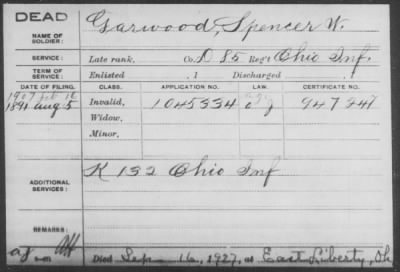 DEAD
NAME OF SOLDIER: Garwood, Spencer W.
SERVICE: Late rank, Co. D 85 Reg't Ohio Inf.
TERM OF SERVICE: Enlisted , 1 Discharged , 1
DATE OF FILING. CLASS. APPLICATION NO. LAW. CERTIFICATE NO.
1907
1891 Aug 5 Invalid, 1045334 947247
Widow,
Minor,
ADDITIONAL SERVICES: K 132 Ohio Inf
REMARKS:
Died Sep 16, 1927, at East Liberty, Oh